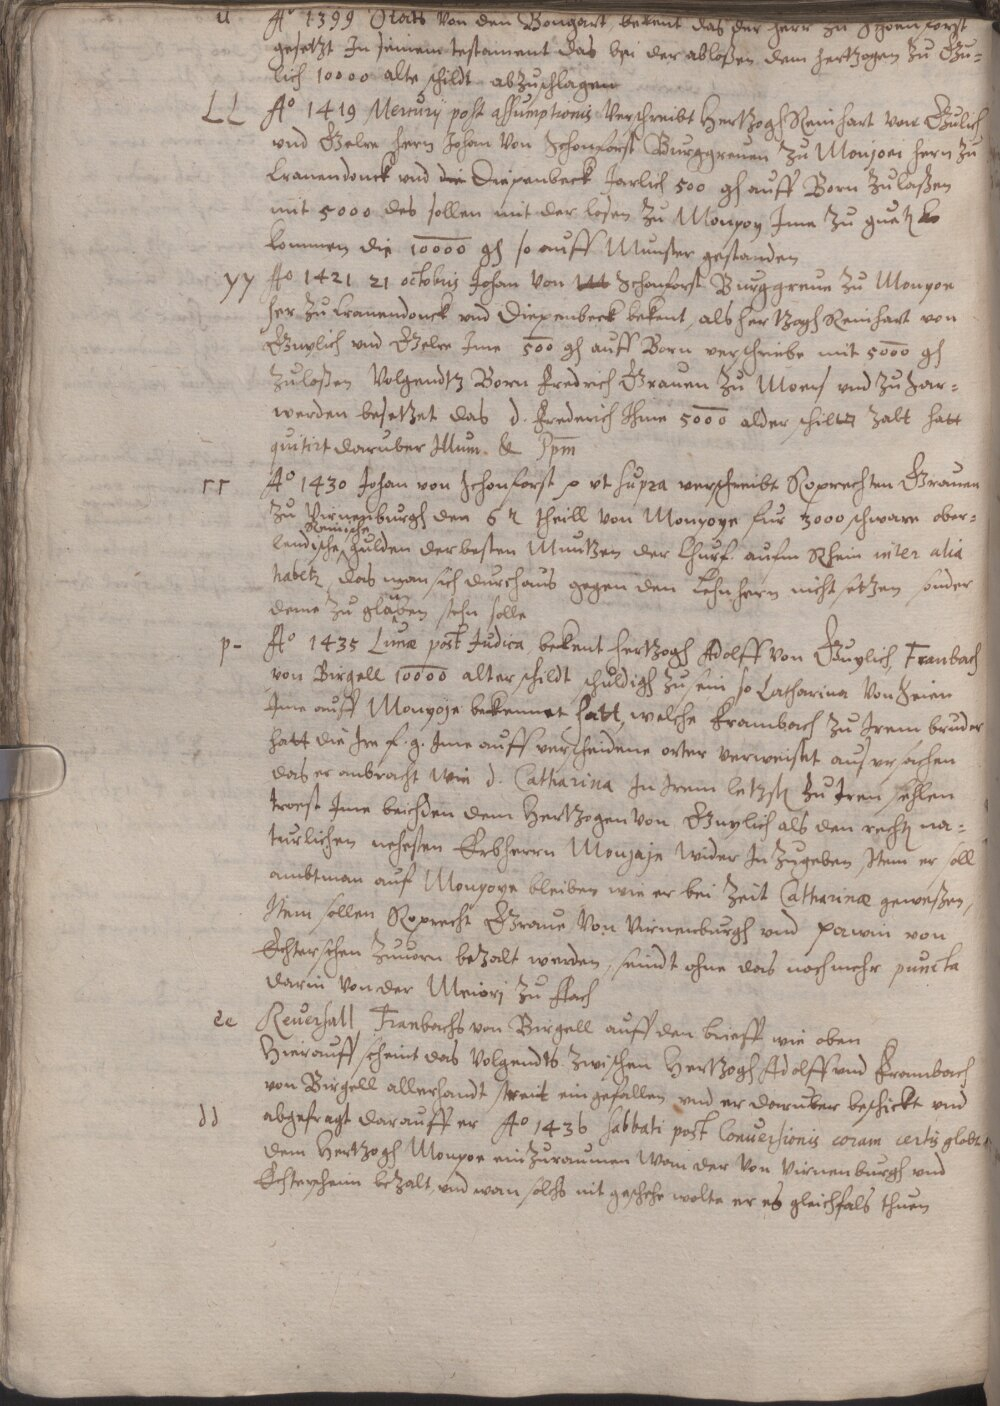 u A° 1399 Stats von den Bongart, bekent das der herr zu Schoenforst
gesetzt In seinem testament das bei der ablosen dem hertzogen zu Gu=
lich 10000 alte schildt abzuschlagen
LL A° 1419 Mercurij post assumptionis verschreibt Hertzogh Reinhart von Gulich
vnd Gelre hern Johan von Schonforst Burggreuen zu Monjoei hern zu
Cranendonck vnd die Diepenbeck Jarlich 500 gl auff Born zulaßen
mit 5000 des sollen mit der losen zu Monyoy Ime zu guetz ko
kommen die 10000 gl so auff Munster gestanden
yy A° 1421 21 octobris Johan von Schonforst Burggreue zu Monyoe
her zu Cranendonck vnd Diepenbeck bekent, als hertzogh Reinhart von
Guylich vnd Gelre Ime 500 gl auff Born verschriebe mit 5000 gl
zuloßen Volgendtz Born Fredrich Grauen zu Moers vnd zu Sar=
werden besetzet das d. Frederich Ihme 5000 alder schiltt zalt hatt
quitirt daruber Illum &
rr A° 1430 Johan von Schonforst p vt supra verschreibt Roprechten Grauen
zu Virnenburgh den 6 theill von Monyoye fur 3000 schware ober=
Reinische
lendische gulden der besten Muntzen der Churf. aufm Rhein inter alia
habetz das man sich durchaus gegen den Lehnhern nicht setzen sonder
deme zu glauben stehn solle
p- A° 1435 Lunæ post Iudica, bekent hertzogh Adolff von Guylich Franbach
von Birgell 10000 alter schildt schuldigh zu sein so Catharina von Seien
Ime auff Monyoje bekennet hatt, welche Frambach zu Irem bruder
hatt die Ire f. g. Ime auff verscheidene orter verweiset aus vrsachen
das er anbracht wie d. Catharina In Irem letzsten zu Iren sehlen
troest Ime beichden dem Hertzogen von Guylich als den rechten na=
turlichen nehesten Erbherrn Monjaje wider In zugeben Item er soll
ambtman auf Monyoye bleiben wie er bei zeit Catharinæ geweßen,
Item sollen Roprecht Graue von Virnenburgh vnd Pawin von
Echterschen zuuorn bezalt werden, seindt ohne das noch mehr puncta
darin von der Meiorj zu
ee Reuersall Franbachs von Birgell auff den brieff wie oben
Hierauff scheint das Volgendts zwischen Hertzogh Adolff vnd Frambach
von Birgell allerhandt streit eingefallen vnd er daruber beschickt vnd
dd abgefragt darauff er A° 1436 sabbati post Conuersionis coram certis
dem Hertzogh Monyoe einzuraumen Wan der von Virnenburgh vnd
Echterschenn bezalt, vnd wan solchs nit geschehe wolte er es gleichfals thuen